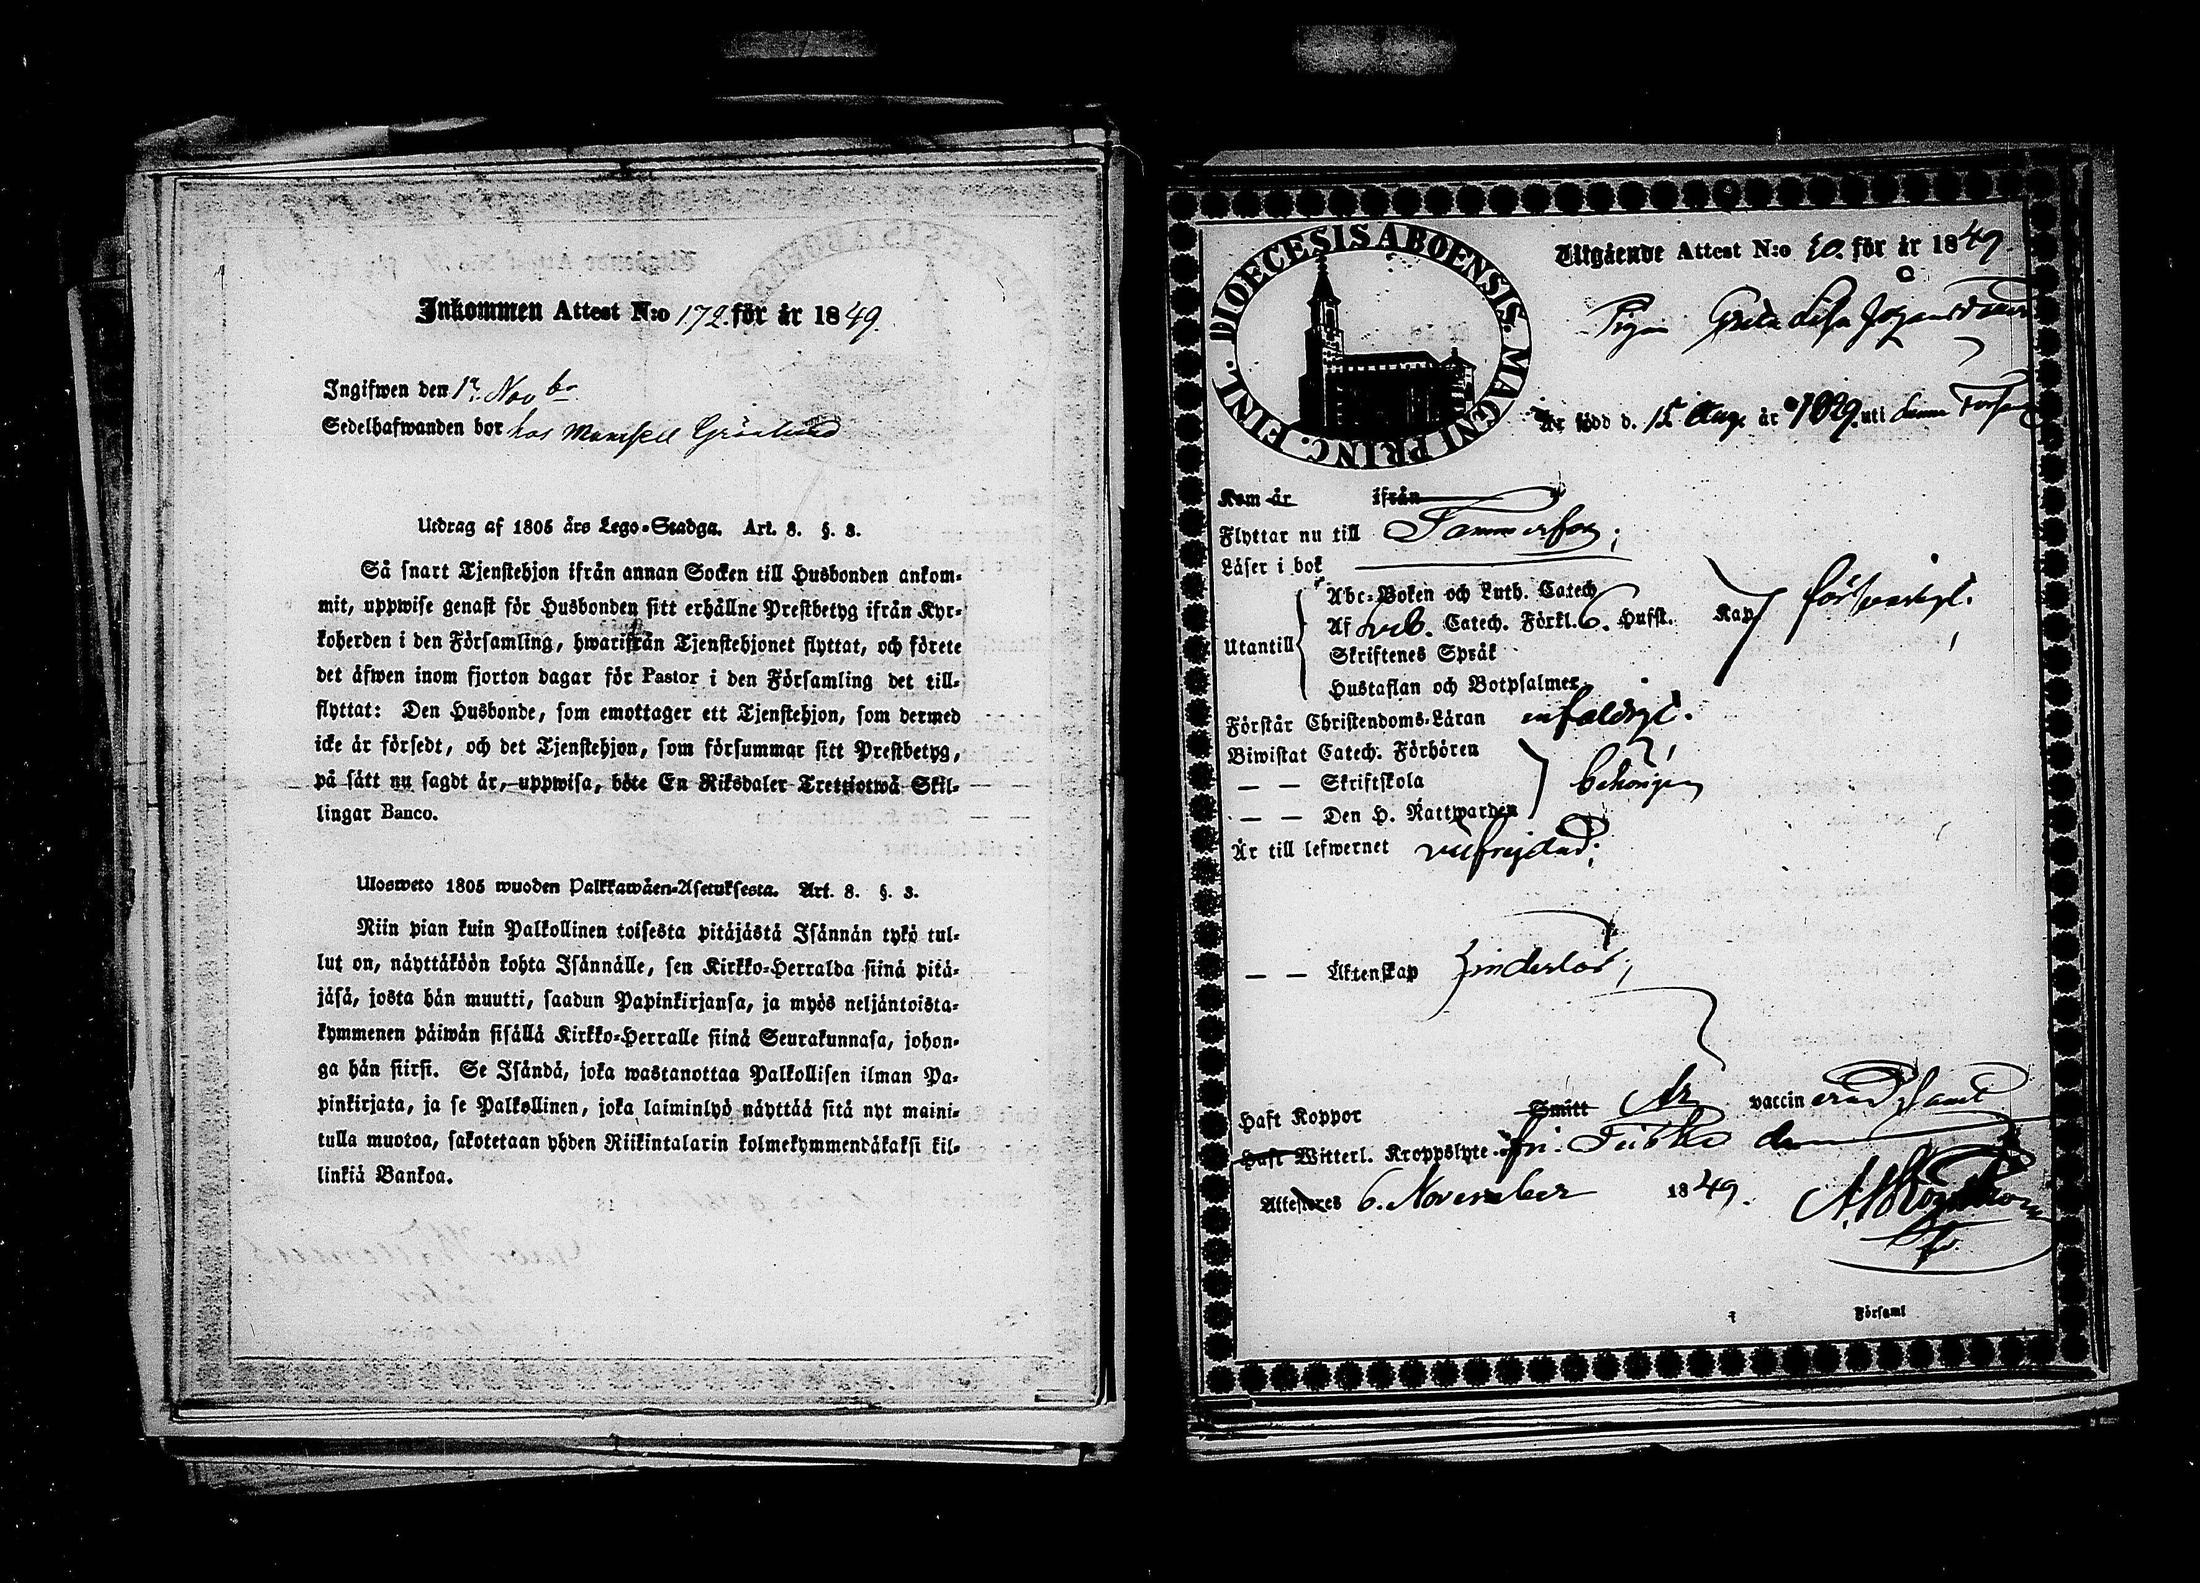 Inkommen Attest N:o 172. för år 1849.
Ingifwen den 1 Nov
Sedelhafwanden bor hos Mamsell Grönlund
Utdrag af 1805 års Lego-Stadga. Art. 8. §. 3.
Så snart Tjenstehjon ifrån annan Socken till Husbonden ankom-
mit, uppwise genast för Husbonden sitt erhållne Prestbetyg ifrån Kyr-
koherden i den Församling, hwarifrån Tjenstehjonet flyttat, och förete
det äfwen inom fjorton dagar för Pastor i den Församling det till-
flyttat: Den Husbonde, som emottager ett Tjenstehjon, som dermed
icke är försedt, och det Tjenstehjon, som försummar sitt Prestbetyg,
på sätt nu sagdt är, uppwisa, böte En Riksdaler Trettiotwå Skil-
lingar Banco.
Ulosweto 1805 wuoden Palkkawäen-Asetuksesta. Art. 8. §. 3.
Niin pian kuin Palkollinen toisesta pitäjästä Isännän tykö tul-
lut on, näyttäköön kohta Isännälle, sen Kirkko-Herralda siinä pitä-
jäsä, josta hän muutti, saadun Papinkirjansa, ja myös neljäntoista-
kymmenen päiwän sisällä Kirkko-Herralle siinä Seurakunnasa, johon-
ga hän siirsi. Se Isändä, joka wastanottaa Palkollisen ilman Pa-
pinkirjata, ja se Palkollinen, joka laiminlyö näyttää sitä nyt maini-
tulla muotoa, sakotetaan yhden Riikintalarin kolmekymmendäkaksi kil-
linkiä Bankoa.
DIOECESIS ABOENSIS. MAGNI PRINC. FINL.
Utgående Attest N:o 20. för år 1849.
Pigan Greta Lisa
Är född d. 15 Aug. år 1829. uti denna
Kom år ifrån
Flyttar nu till Tammerfors;
Läser i bok
Abc-Boken och Luth. Catech
Utantill Af Catech. Förkl. 6. Hufst. Kap
Skriftenes Språk
Hustaflan och Botpsalmer
Förstår Christendoms-Läran enfaldigt.
Biwistat Catech. Förhören
— — Skriftskola behörigen
— — Den H. Nattwarden
Är till lefwernet välfrejdad;
— — Äktenskap hinderlös;
Haft Koppor Smitt Är vaccinerad samt
Haft Witterl. Kroppslyte fri
Attesteres 6. November 1849.
Församl